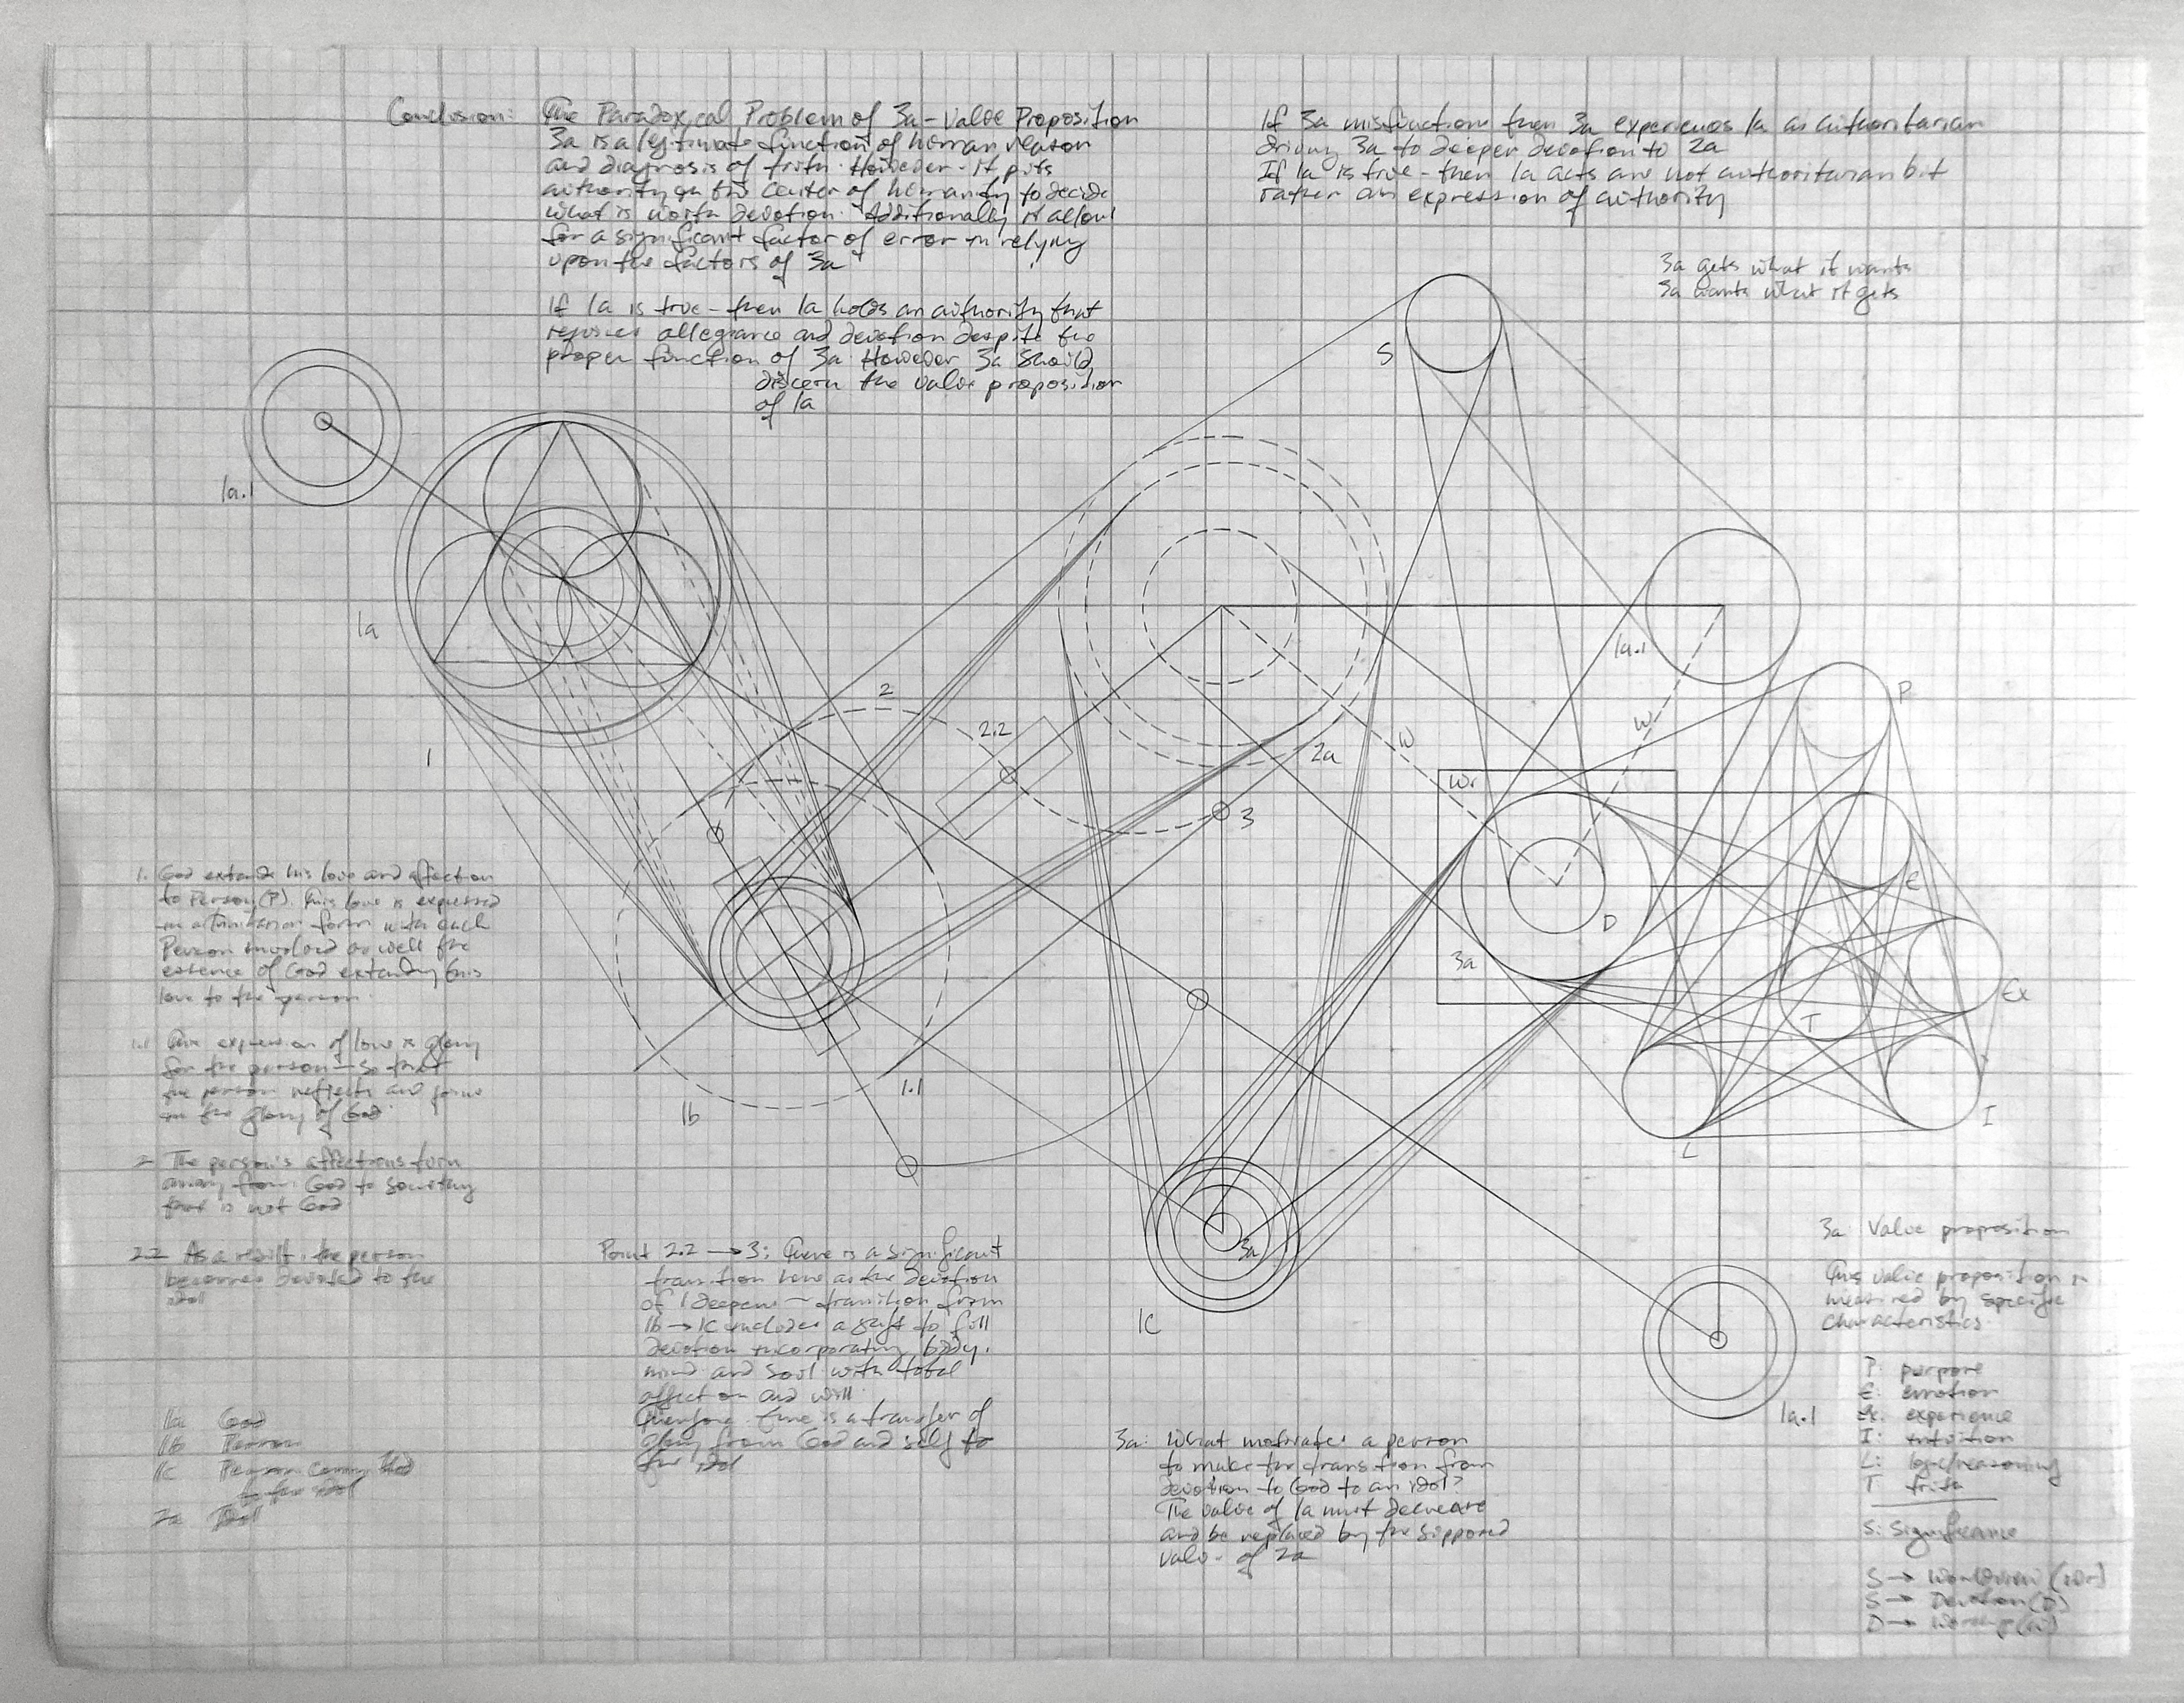 Conclusion: The Paradoxical Problem of 3a - Value Proposition
3a is a legitimate function of human reason
and diagnosis of truth. However - it puts
authority on the center of humanity to decide
what is worth devotion. Additionally it allows
for a significant factor of error in relying
upon the factors of 3a
If 1a is true - then 1a holds an authority that
requires allegiance and devotion despite the
proper function of 3a. However 3a should
discern the value proposition
of 1a
If 3a misfunctions then 3a experiences 1a as authoritarian
driving 3a to deeper devotion to 2a
If 1a is true - then 1a acts are not authoritarian but
rather an expression of authority
3a gets what it wants
3a wants what it gets
S
1a.1
1a
1
2
2.2
2a
3
W
W
1a.1
P
Wr
E
D
3a
Ex
T
I
L
1b
1.1
3a
1C
1a.1
1. God extends his love and affection
to Person (P). This love is expressed
in a trinitarian form with each
Person involved as well the
essence of God extending this
love to the person.
1.1 The expression of love is glory
for the person - so that
the person reflects and
in the glory of God.
2 The person's affections turn
away from God to something
that is not God
2.2 As a result, the person
becomes devoted to the
idol
1a God
1b Person
1c Person committed
to the idol
2a Idol
Point 2.2 → 3: There is a significant
transition here as the devotion
of 1 deepens - transition from
1b → 1c includes a shift to full
devotion incorporating body,
mind and soul with total
affection and will.
Therefore - there is a transfer of
glory from God and self to
the idol
3a: What motivates a person
to make the transition from
devotion to God to an idol?
The value of 1a must decrease
and be replaced by the supposed
value of 2a
3a: Value proposition
This value proposition is
measured by specific
characteristics.
P: purpose
E: emotion
Ex: experience
I: intuition
L: logic/reasoning
T truth
S: Significance
S → Worldview (Wr)
S → Devotion (D)
D → Worship (W)